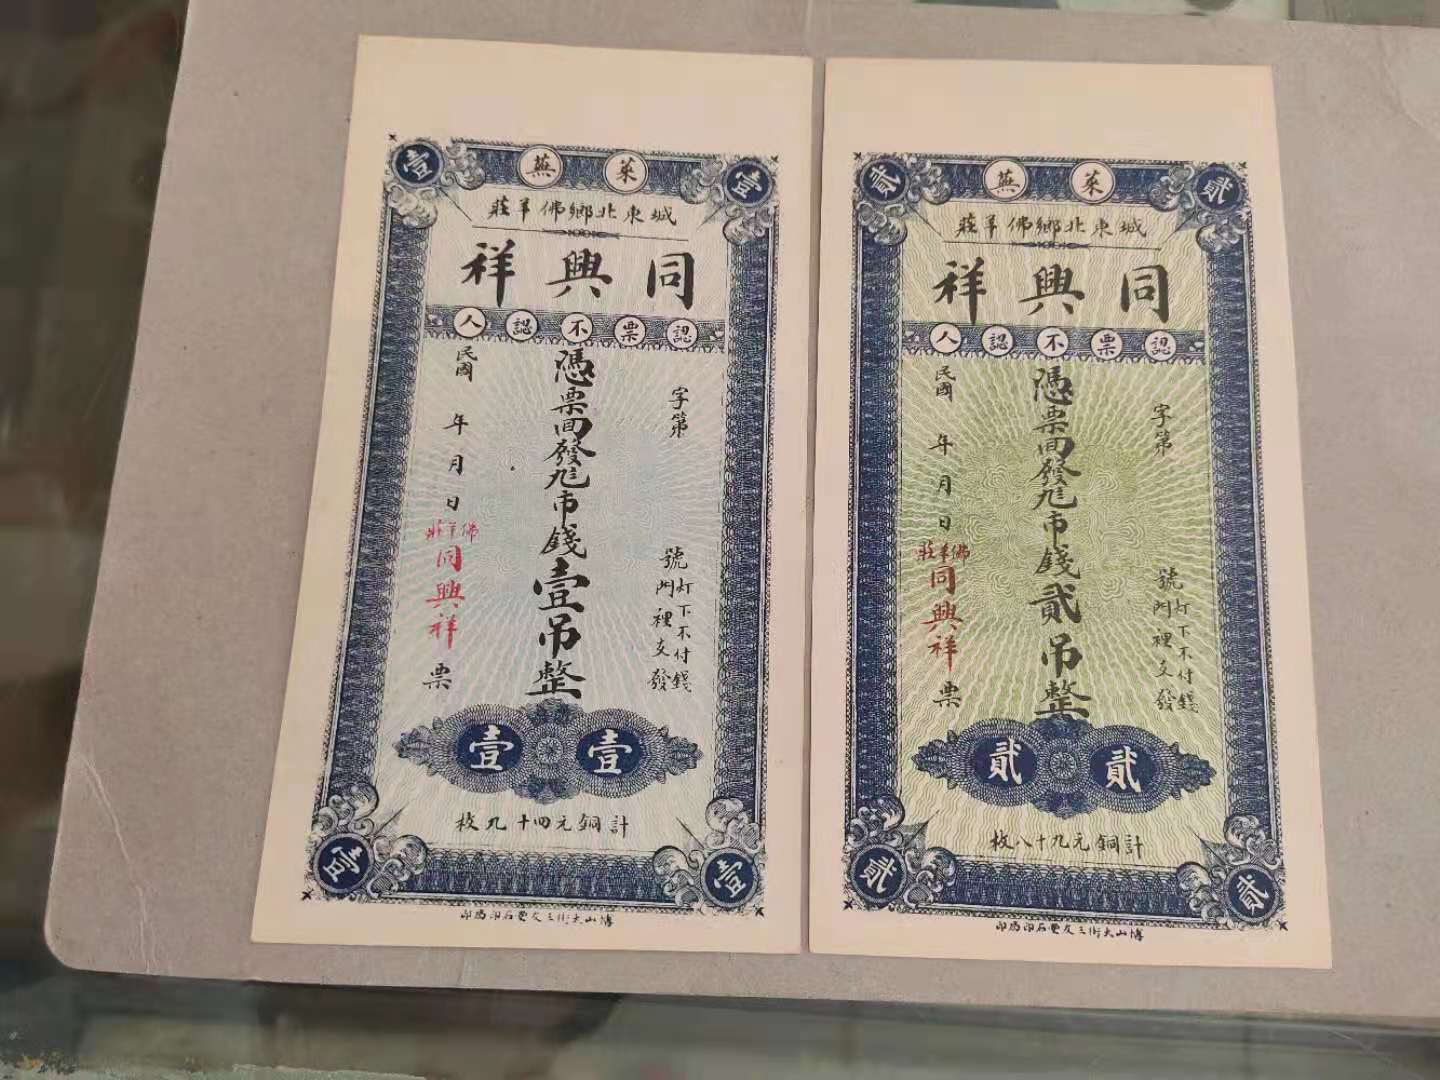 壹 萊蕪 壹
城東北鄉佛羊莊
同興祥
認票不認人
字第
號
灯下不付錢
門裡交發
憑票回發九市錢壹吊整
民國 年 月 日
佛羊莊
同興祥
票
壹 壹
計銅元四十九枚
壹 壹
博山大街三友豐石印局印
貳 萊蕪 貳
城東北鄉佛羊莊
同興祥
認票不認人
字第
號
灯下不付錢
門裡交發
憑票回發九市錢貳吊整
民國 年 月 日
佛羊莊
同興祥
票
貳 貳
計銅元九十八枚
貳 貳
博山大街三友豐石印局印